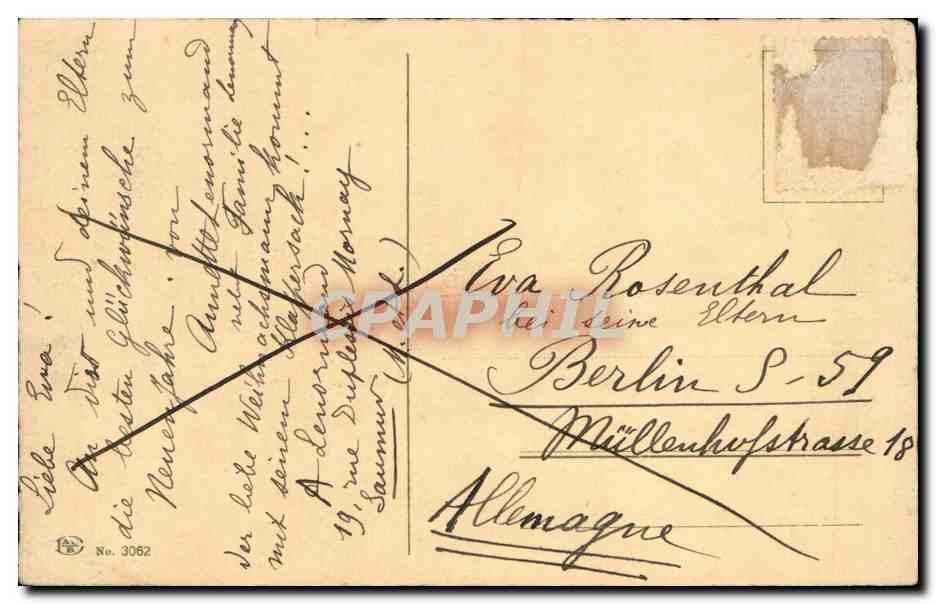 Liebe Eva!
An dir und deinem Eltern
die besten Glückwünsche zum
Neuen Jahre. von
Annette Lenormand
nebst Familie Lenormand
der liebe Weihnachsmann kommt
mit seinem Klappersack!...
A Lenormand
19, rue Duplessis Mornay
Saumur (M. et L.)
Eva Rosenthal
bei seine Eltern
Berlin S-59
Müllenhofstrasse 18
Allemagne
No. 3062
CPAPHIL